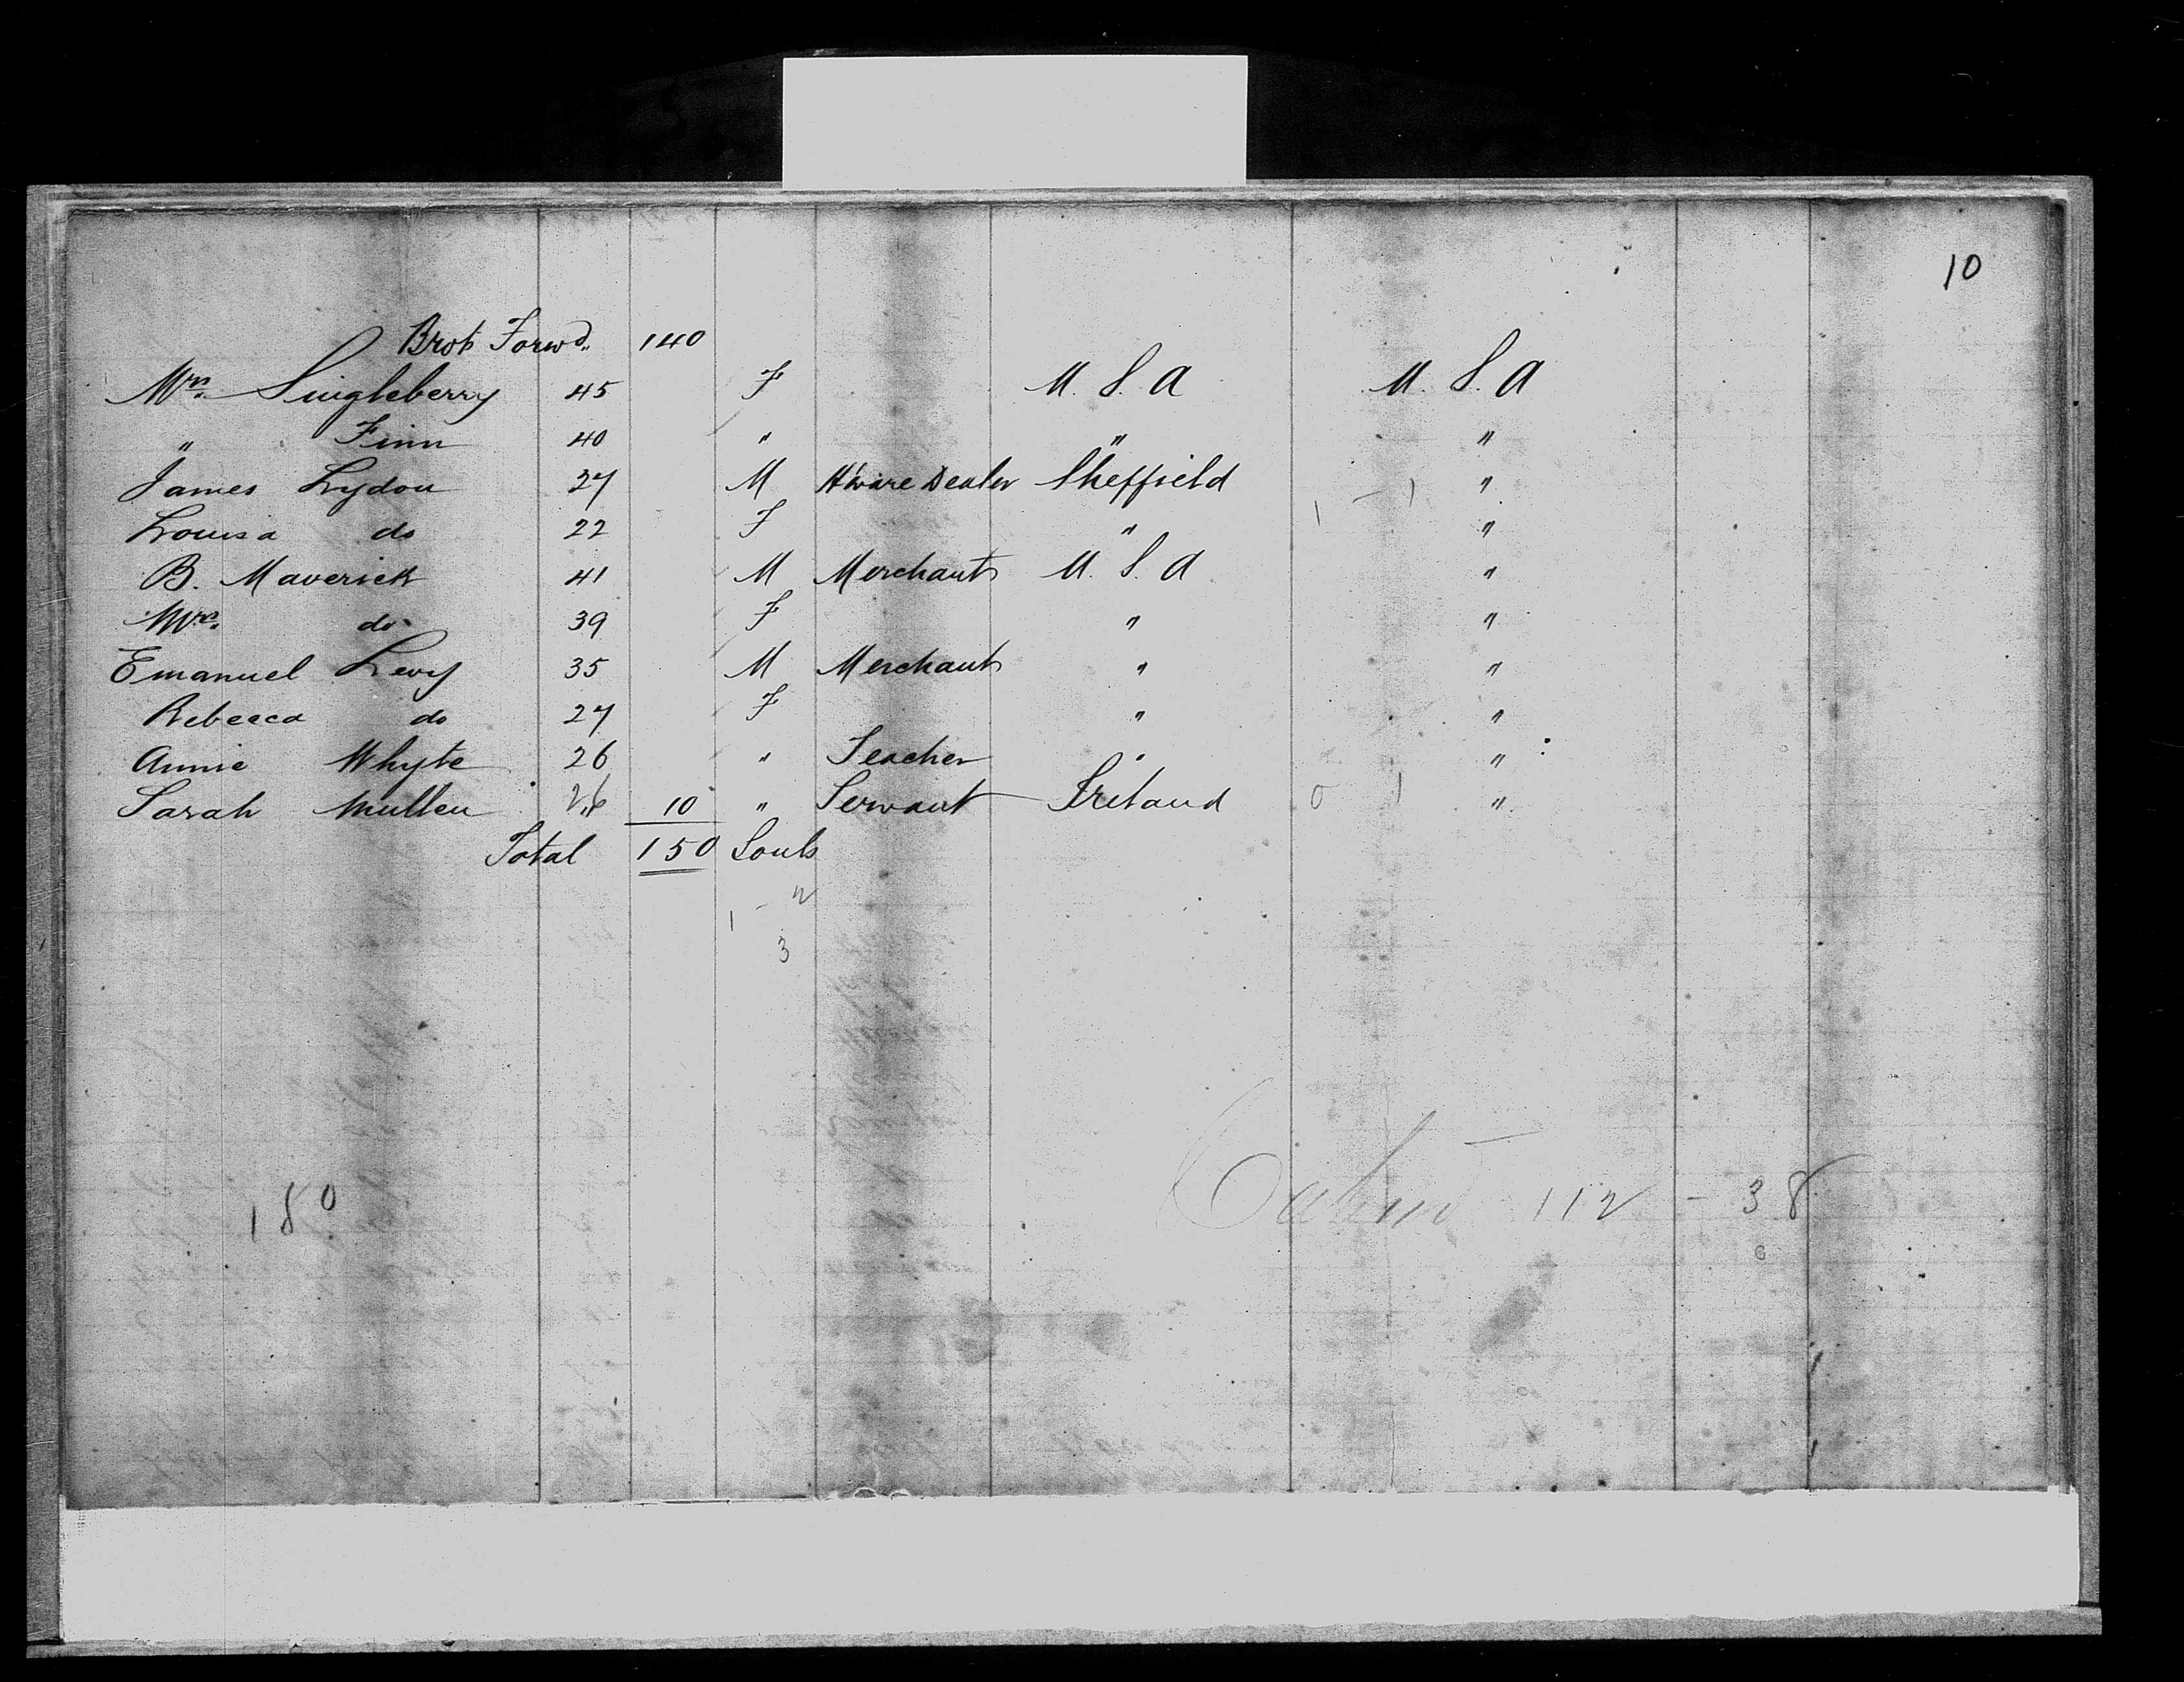 10
Brot Forwd. 140
Mrs. Singleberry 45 F U. S. A U. S. A
" Finn 40 " " "
James Lydon 27 M H'ware Dealer Sheffield 1 - 1 "
Louisa do 22 F " "
B. Maverick 41 M Merchant U. S. A "
Mrs. do 39 F " "
Emanuel Levy 35 M Merchant " "
Rebecca do 27 F " "
Annie Whyte 26 " Teacher " "
Sarah Mullen 26 10 " Servant Ireland 0 1 "
Total 150 Souls
1 - 2
3
112 - 38
180